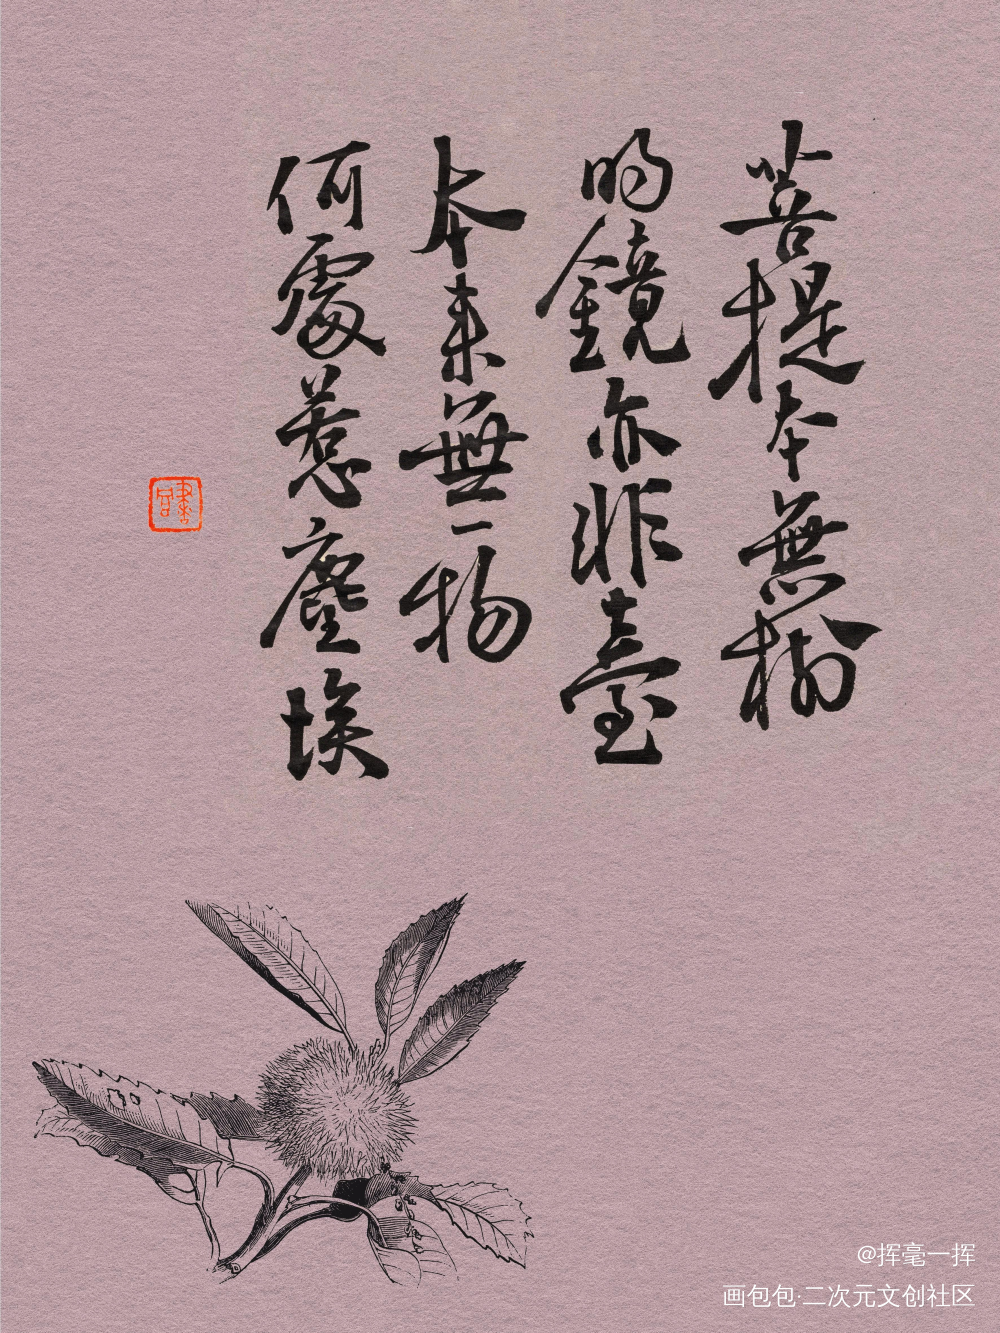 菩提本無樹
明鏡亦非臺
本來無一物
何處惹塵埃
@挥毫一挥
画包包·二次元文创社区